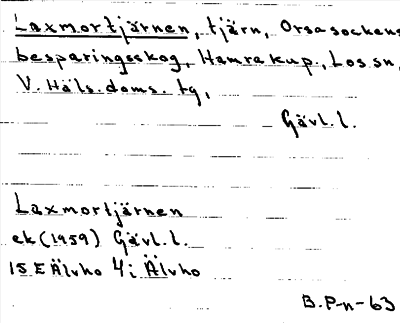 Laxmortjärnen, tjärn, Orsa sockens
besparingsskog, Hamra kup., Los sn,
V. Häls. doms. tg,
Gävl. l.
Laxmortjärnen
ek (1959) Gävl. l.
15 E Älvho 4 i Älvho
B. P-n-63